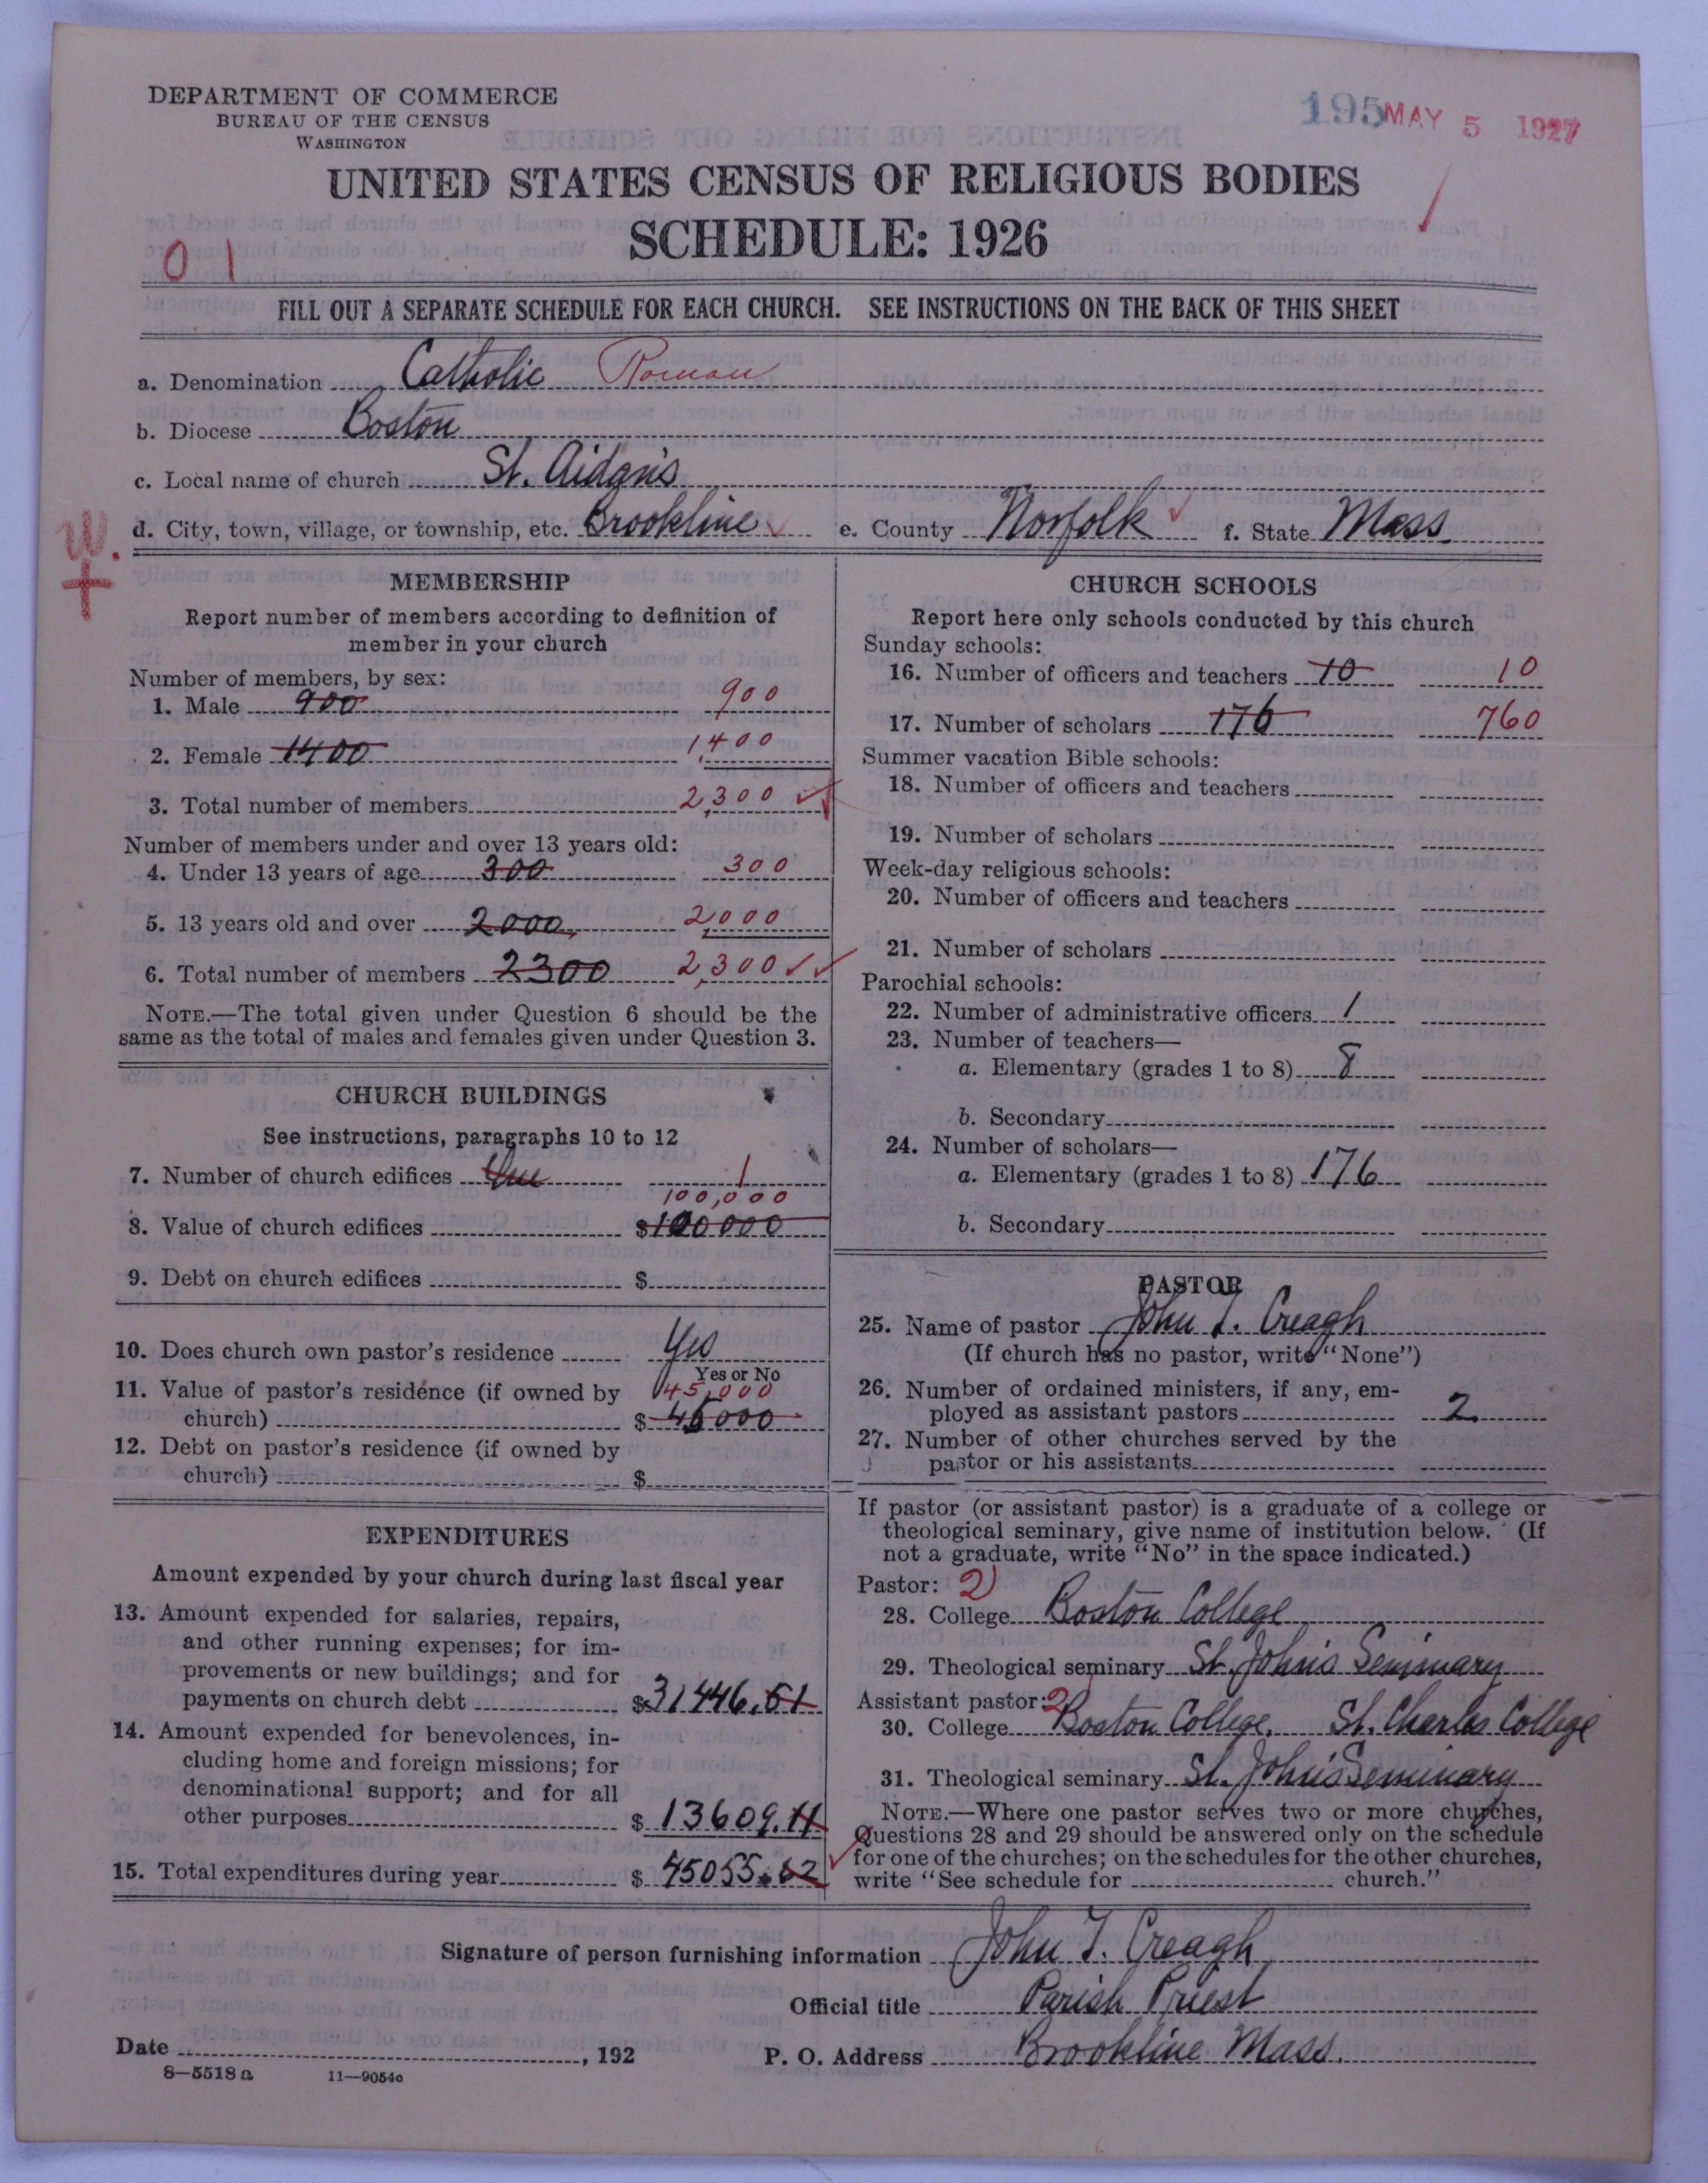 DEPARTMENT OF COMMERCE
BUREAU OF THE CENSUS
WASHINGTON
195 MAY 5 1927
UNITED STATES CENSUS OF RELIGIOUS BODIES
SCHEDULE: 1926
0 1
FILL OUT A SEPARATE SCHEDULE FOR EACH CHURCH. SEE INSTRUCTIONS ON THE BACK OF THIS SHEET
a. Denomination Catholic Roman
b. Diocese Boston
c. Local name of church St. Aidan's
d. City, town, village, or township, etc. Brookline e. County Norfolk f. State Mass.
W.
MEMBERSHIP
Report number of members according to definition of
member in your church
Number of members, by sex:
1. Male 900 900
2. Female 1400 1,400
3. Total number of members 2,300
Number of members under and over 13 years old:
4. Under 13 years of age 300 300
5. 13 years old and over 2000 2,000
6. Total number of members 2300 2,300
NOTE.—The total given under Question 6 should be the
same as the total of males and females given under Question 3.
CHURCH BUILDINGS
See instructions, paragraphs 10 to 12
7. Number of church edifices One 1
100,000
8. Value of church edifices $100000
9. Debt on church edifices $
10. Does church own pastor's residence Yes
Yes or No
11. Value of pastor's residence (if owned by 45,000
church) $45000
12. Debt on pastor's residence (if owned by
church) $
EXPENDITURES
Amount expended by your church during last fiscal year
13. Amount expended for salaries, repairs,
and other running expenses; for im-
provements or new buildings; and for
payments on church debt $31446.51
14. Amount expended for benevolences, in-
cluding home and foreign missions; for
denominational support; and for all
other purposes $13609.11
15. Total expenditures during year $45055.62
CHURCH SCHOOLS
Report here only schools conducted by this church
Sunday schools:
16. Number of officers and teachers 10 10
17. Number of scholars 176 760
Summer vacation Bible schools:
18. Number of officers and teachers
19. Number of scholars
Week-day religious schools:
20. Number of officers and teachers
21. Number of scholars
Parochial schools:
22. Number of administrative officers 1
23. Number of teachers—
a. Elementary (grades 1 to 8) 8
b. Secondary
24. Number of scholars—
a. Elementary (grades 1 to 8) 176
b. Secondary
PASTOR
25. Name of pastor John T. Creagh
(If church has no pastor, write "None")
26. Number of ordained ministers, if any, em-
ployed as assistant pastors 2
27. Number of other churches served by the
pastor or his assistants
If pastor (or assistant pastor) is a graduate of a college or
theological seminary, give name of institution below. (If
not a graduate, write "No" in the space indicated.)
Pastor: 2
28. College Boston College
29. Theological seminary St. John's Seminary
Assistant pastor: 2
30. College Boston College. St. Charles College
31. Theological seminary St. John's Seminary
NOTE.—Where one pastor serves two or more churches,
Questions 28 and 29 should be answered only on the schedule
for one of the churches; on the schedules for the other churches,
write "See schedule for church."
Signature of person furnishing information John T. Creagh
Official title Parish Priest
Date , 192 P. O. Address Brookline Mass.
8—5518a 11—9054c